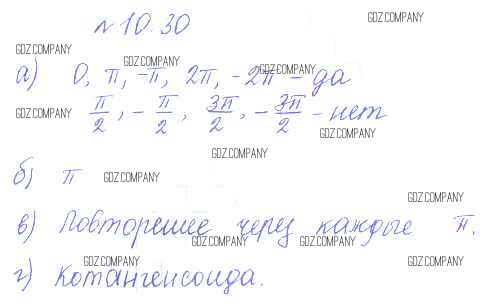 №10.30
GDZ.COMPANY
GDZ.COMPANY
GDZ.COMPANY
а) 0, π, -π, 2π, -2π - да
GDZ.COMPANY
GDZ.COMPANY
π/2, -π/2, 3π/2, -3π/2 - нет
GDZ.COMPANY
GDZ.COMPANY
б) π
GDZ.COMPANY
GDZ.COMPANY
в) Повторение через каждые π.
GDZ.COMPANY
GDZ.COMPANY
GDZ.COMPANY
GDZ.COMPANY
г) Котангенсоида.